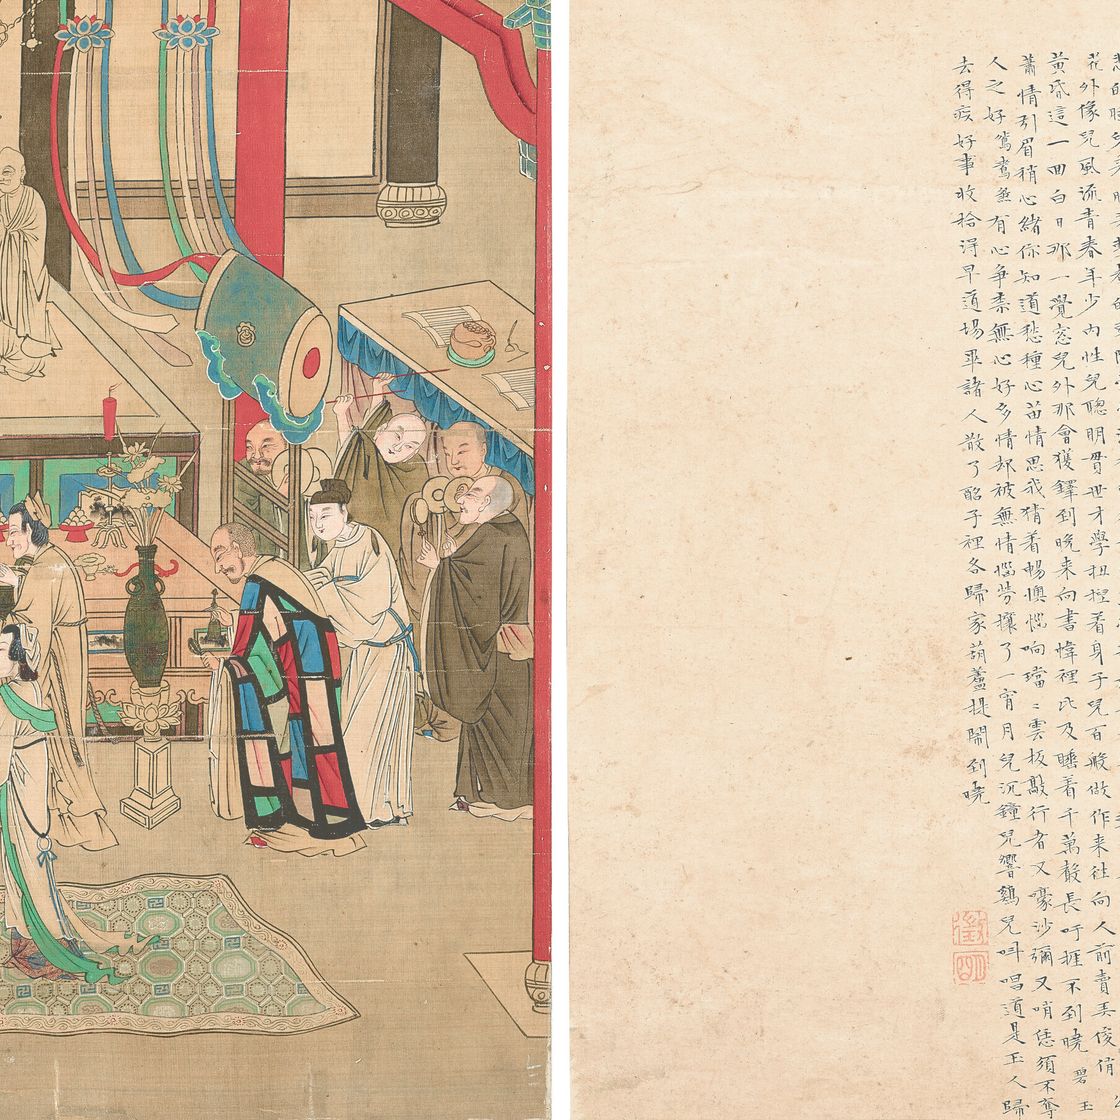 外像兒風流青春年少內性兒聰明貫世才學扭捏着身子兒百般做作來往向人前賣弄俊俏
黃昏這一回白日那一覺窓兒外那會獲鐸到晚來向書幃裡比及睡着千萬聲長吁捱不到曉 碧玉
蕭情引眉稍心緒你知道愁種心苗情思我猜着暢懊惱响璫〻雲板敲行者又嚎沙彌又哨恁須不奪
人之好 鴛鴦煞 有心爭柰無心好多情却被無情惱勞攘了一宵月兒沉鐘兒響鷄兒叫唱道是玉人歸
去得疾好事收拾得早道場畢諸人散了酩子裡各歸家葫蘆提鬧到曉